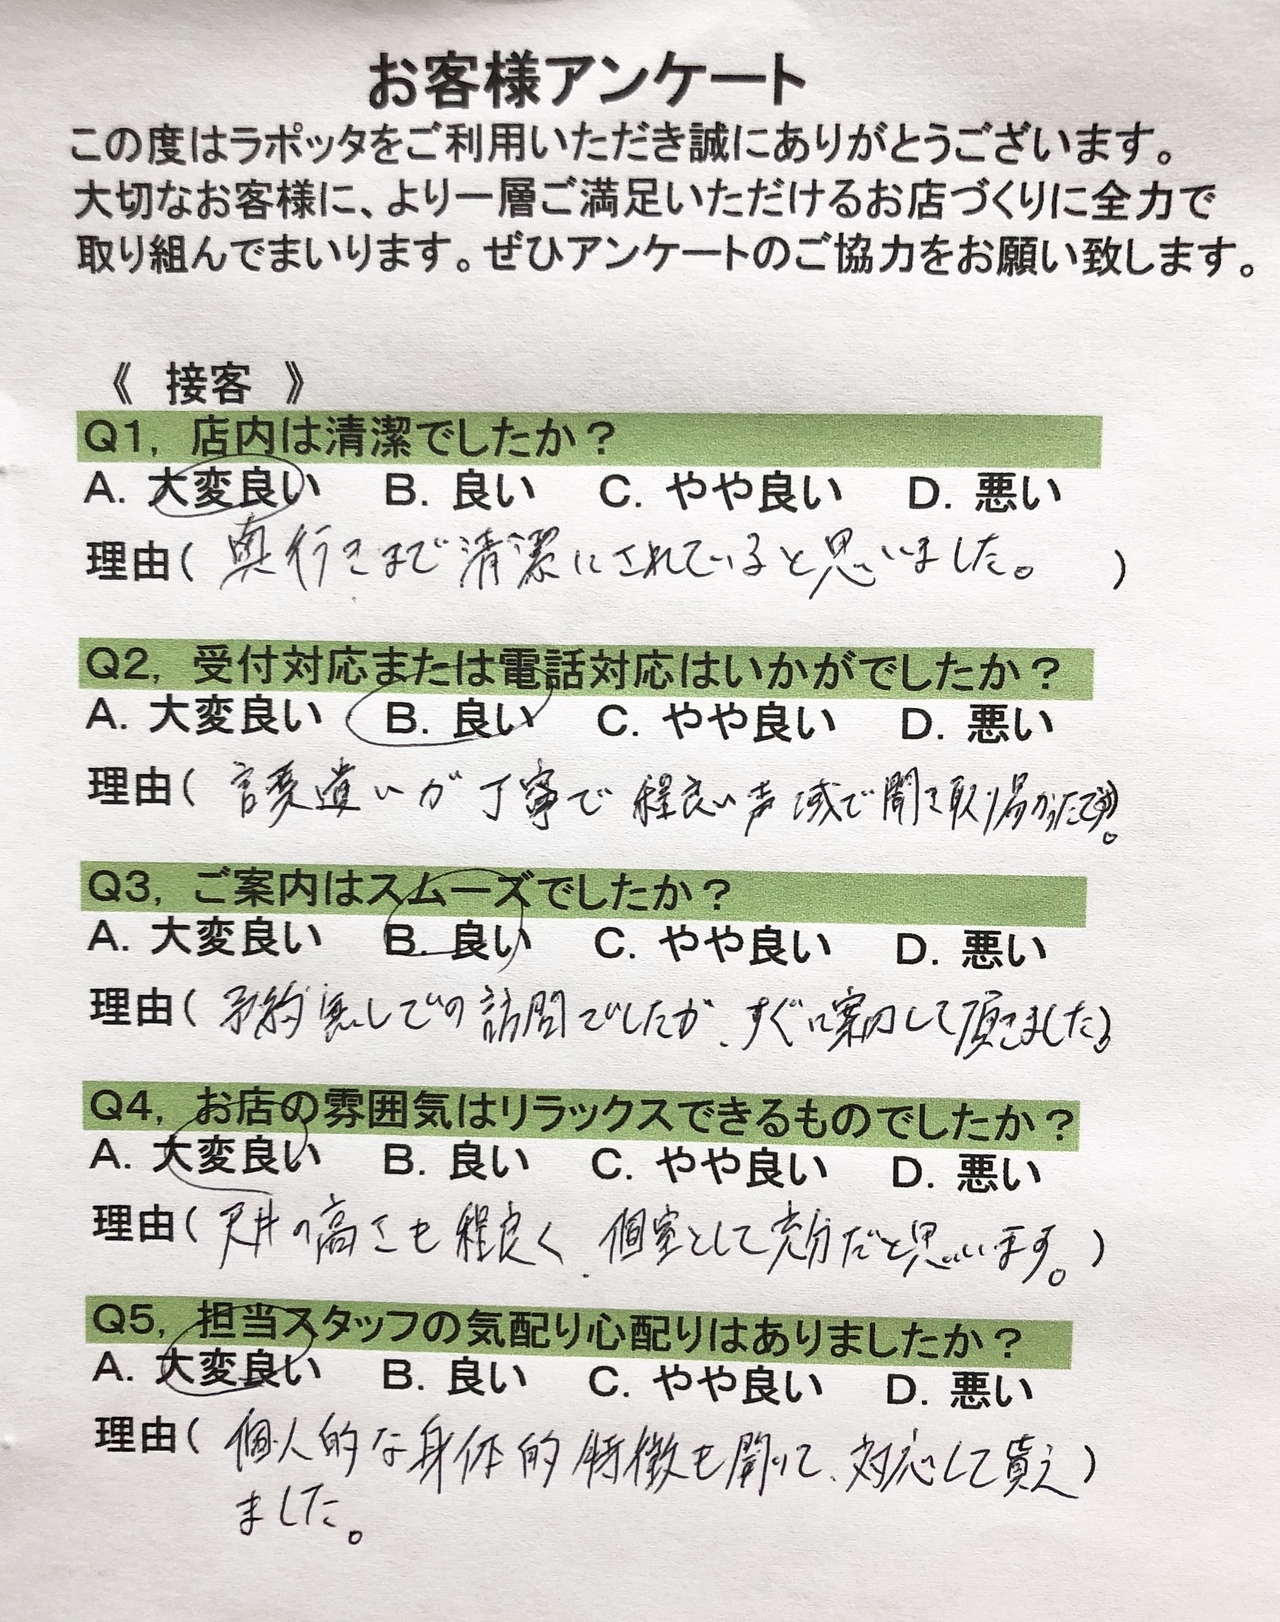 お客様アンケート
この度はラポッタをご利用いただき誠にありがとうございます。
大切なお客様に、より一層ご満足いただけるお店づくりに全力で
取り組んでまいります。ぜひアンケートのご協力をお願い致します。
《 接客 》
Q1, 店内は清潔でしたか？
A. 大変良い B. 良い C. やや良い D. 悪い
理由( 奥行きまで清潔にされていると思いました。 )
Q2, 受付対応または電話対応はいかがでしたか？
A. 大変良い B. 良い C. やや良い D. 悪い
理由( 言葉遣いが丁寧で程良い声域で聞き取り易かったです。)
Q3, ご案内はスムーズでしたか？
A. 大変良い B. 良い C. やや良い D. 悪い
理由( 予約無しでの訪問でしたが、すぐに案内して頂きました)
Q4, お店の雰囲気はリラックスできるものでしたか？
A. 大変良い B. 良い C. やや良い D. 悪い
理由( 天井の高さも程良く、個室として充分だと思います。)
Q5, 担当スタッフの気配り心配りはありましたか？
A. 大変良い B. 良い C. やや良い D. 悪い
理由( 個人的な身体的特徴も聞いて、対応して貰え)
ました。